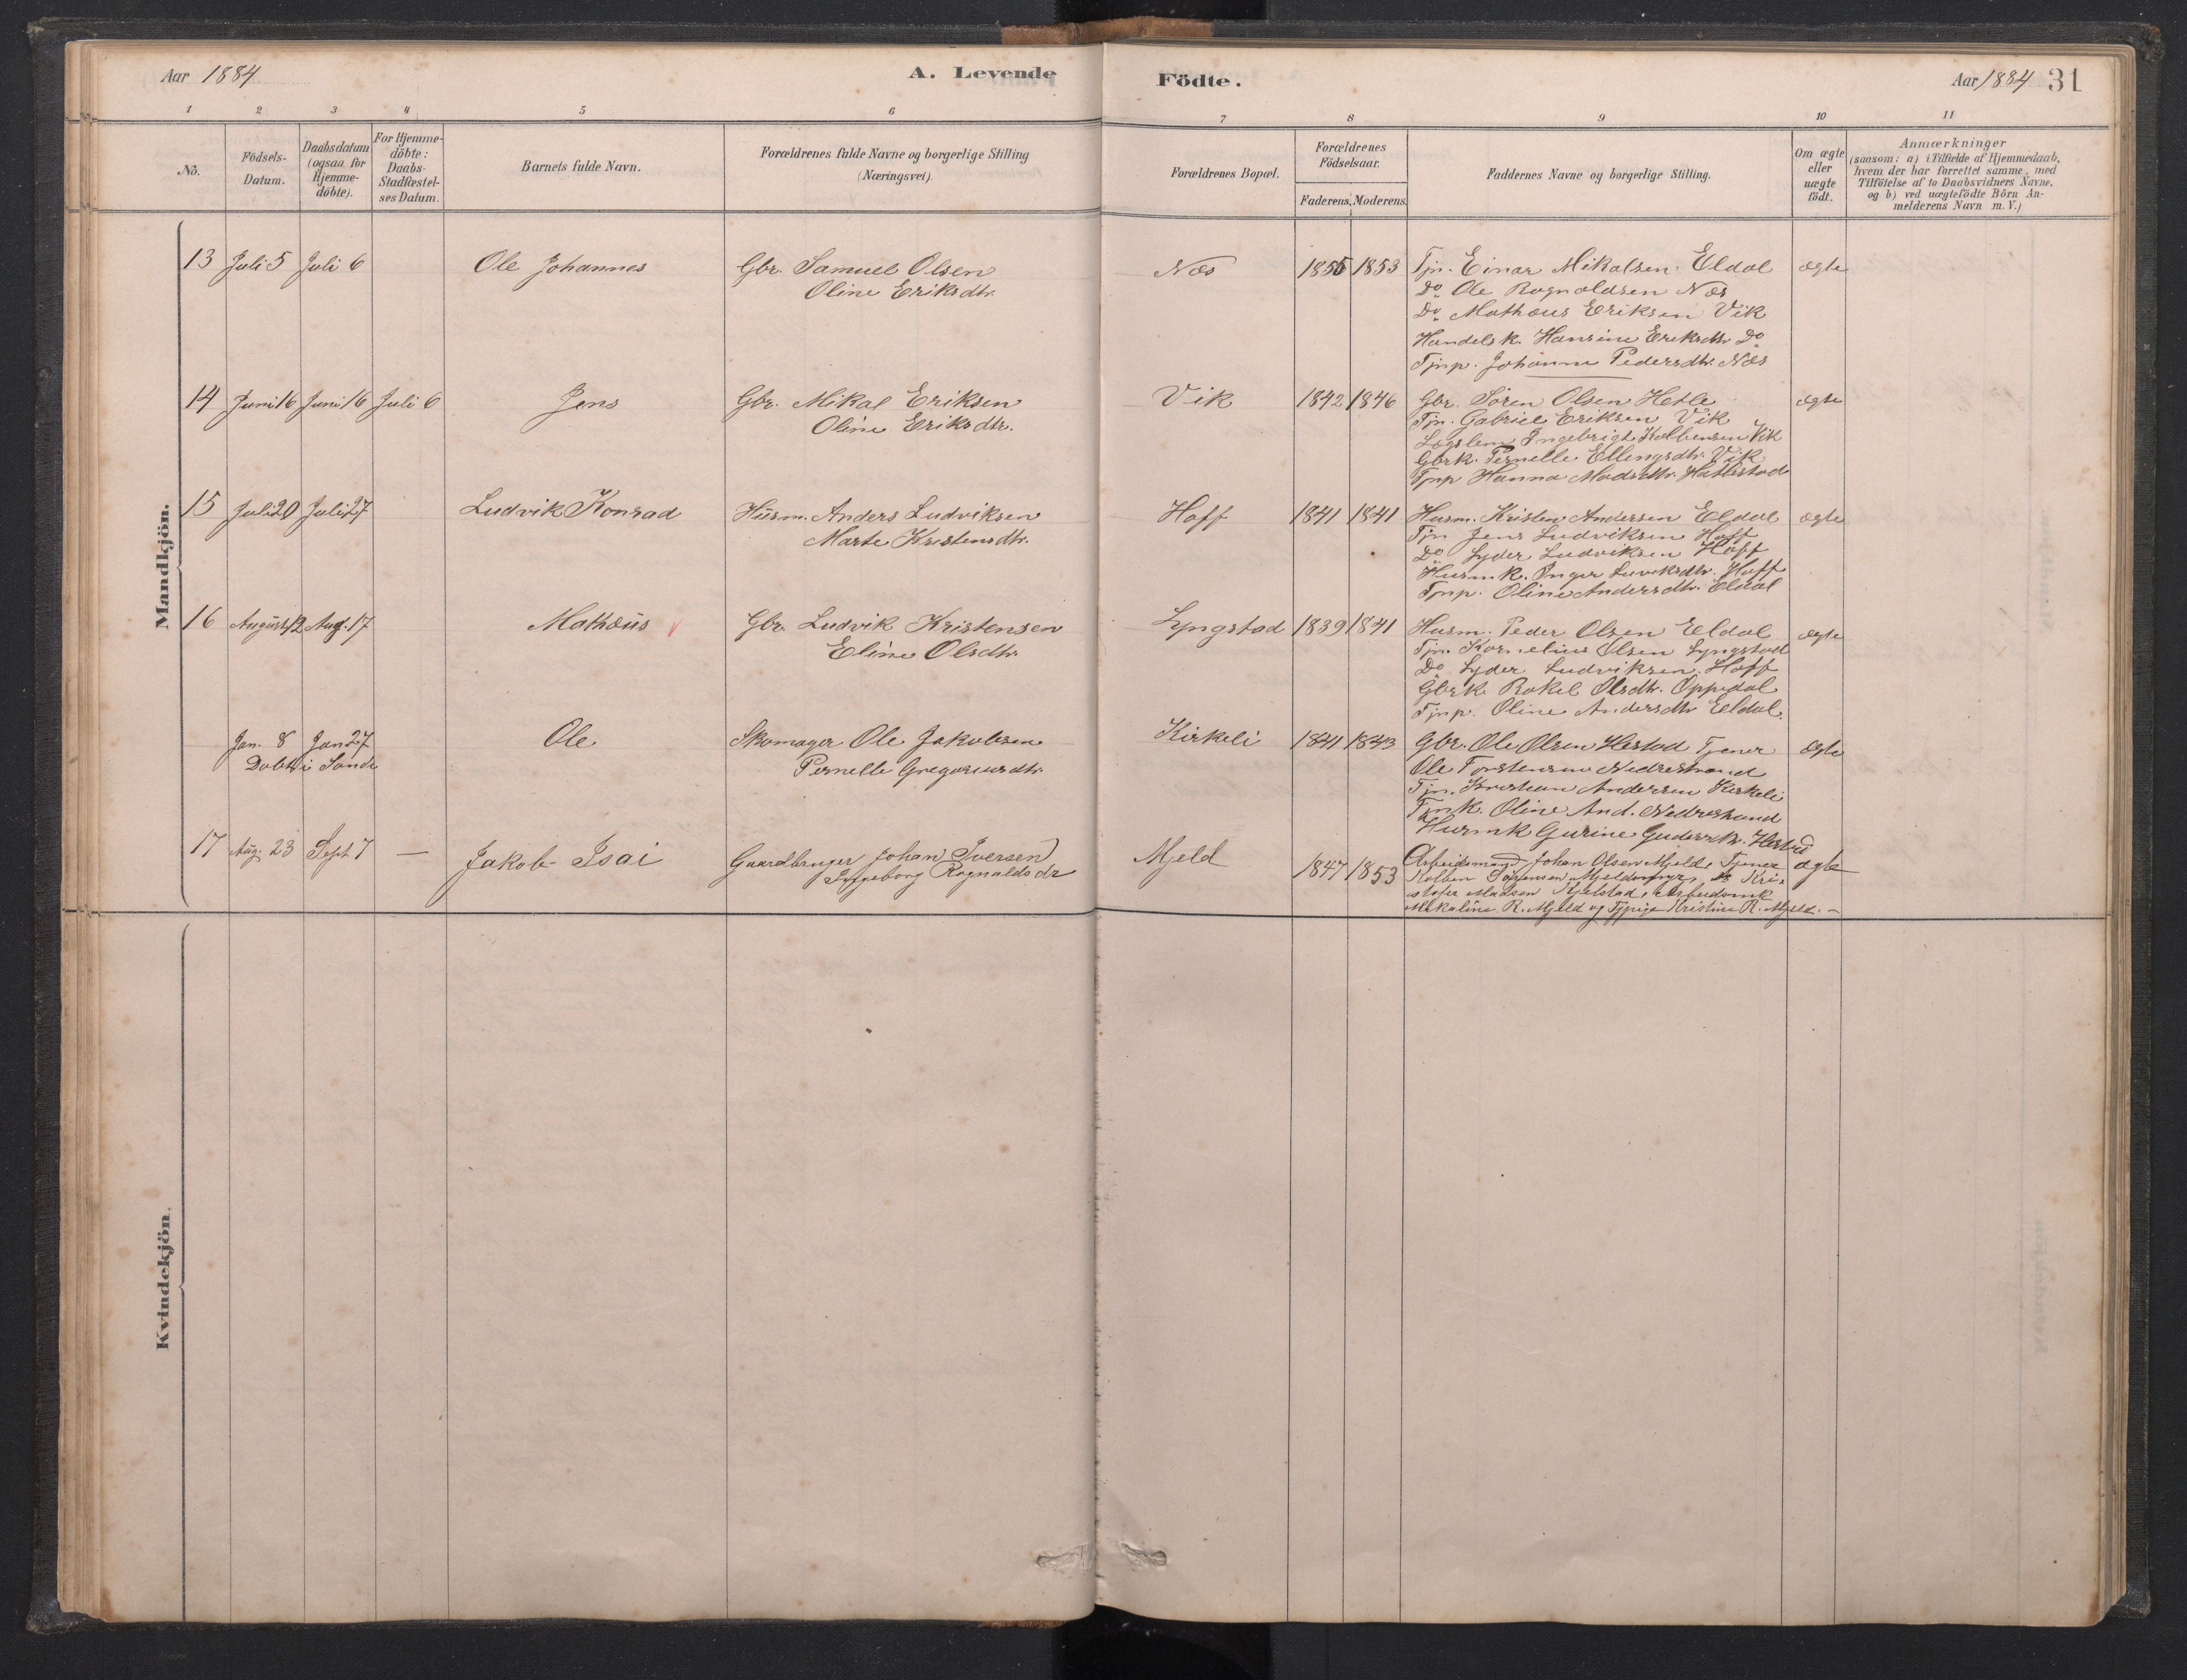 Aar 1884
A. Levende
Födte.
Aar 1884 31
1 2 3 4 5 6 7 8 9 10 11
No.
Födsels-
Datum.
Daabsdatum
(ogsaa for
Hjemme-
döbte).
For Hjemme-
döbte:
Daabs-
Stadfæstel-
ses Datum.
Barnets fulde Navn.
Forældrenes fulde Navne og borgerlige Stilling
(Næringsvei).
Forældrenes Bopæl.
Forældrenes
Födselsaar.
Faderens. Moderens.
Faddernes Navne og borgerlige Stilling.
Om ægte
eller
uægte
födt.
Anmærkninger
(saasom: a) i Tilfælde af Hjemmedaab,
hvem der har forrettet samme, med
Tilföielse af to Daabsvidners Navne,
og b) ved uægtefödte Börn An-
melderens Navn m. V.)
Mandkjön.
13 Juli 5 Juli 6 Ole Johannes Gbr. Samuel Olsen Næs 1855 1853 Tjn. Einar Mikalsen Eldal ægte
Oline Eriksdtr.
Do Ole Rognaldsen Næs
Do Mathæus Eriksen Vik
Handelsk. Hansine Eriksdtr. Do
Tjnp. Johanne Pedersdtr. Næs
14 Juni 16 Juni 16 Juli 6 Jens Gbr. Mikal Eriksen Vik 1842 1846 Gbr. Sören Olsen Hetle ægte
Oline Eriksdtr.
Tjn. Gabriel Eriksen Vik
Lægslem Ingebrigt Kolbensen Vik
Gbrk. Pernelle Ellingsdtr. Vik
Tjnp Hanna Madsdtr. Hatlestad
15 Juli 20 Juli 27 Ludvik Konrad Husm. Anders Ludviksen Hoff 1841 1841 Husm. Kristen Andersen Eldal ægte
Marte Kristensdtr.
Tjn Jens Ludviksen Hoff
Do Lyder Ludviksen Hoff
Husmk. Inger Luviksdtr. Hoff
Tjnp. Oline Andersdtr. Eldal
16 August 12 Aug. 17 Mathæus Gbr. Ludvik Kristensen Lyngstad 1839 1841 Husm. Peder Olsen Eldal ægte
Eline Olsdtr.
Tjn. Kornelius Olsen Lyngstad
Do Lyder Ludviksen Hoff
Gbrk. Rakel Olsdtr. Oppedal
Tjnp. Oline Andersdtr Eldal.
Jan. 8 Jan 27 Ole Skomager Ole Jakobsen Kirkeli 1841 1843 Gbr. Ole Olsen Hestad Tjener ægte
Döbt i Sande
Pernelle Gregoriusdtr.
Ole Torstensen Nedrestrand
Tjn. Kristian Andersen Kirkeli
Tjnk. Oline And. Nedrestrand
Husmk Gurine Hestad
17 Aug. 23 Sept 7 — Jakob Isai Gaardbruger Johan Iversen Mjeld 1847 1853 Arbeidsmand Johan Olsen Mjeld, Tjener ægte
Ingeborg Rognaldsdr
Kolben Sörensen Kri-
stofer Madsen Kjelstad, Arbeidsmk
Mikaline R. Mjeld og Tjpige Kristine R. Mjeld. —
Kvindekjön.